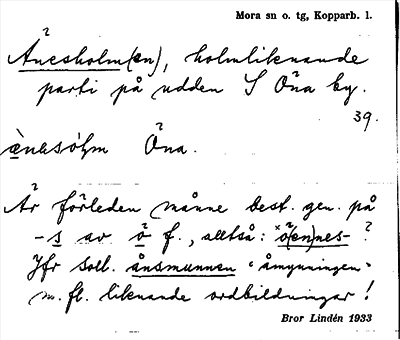 Mora sn o. tg, Kopparb. l.
Ånesholm(en), holmliknande
parti på udden S Öna by.
39.
Öna.
Är förleden månne best. gen. på
-s av ö f., alltså: *ö(en)nes- ?
Jfr soll. ånsmunnen "åmynningen"
m. fl. liknande ordbildningar!
Bror Lindén 1933